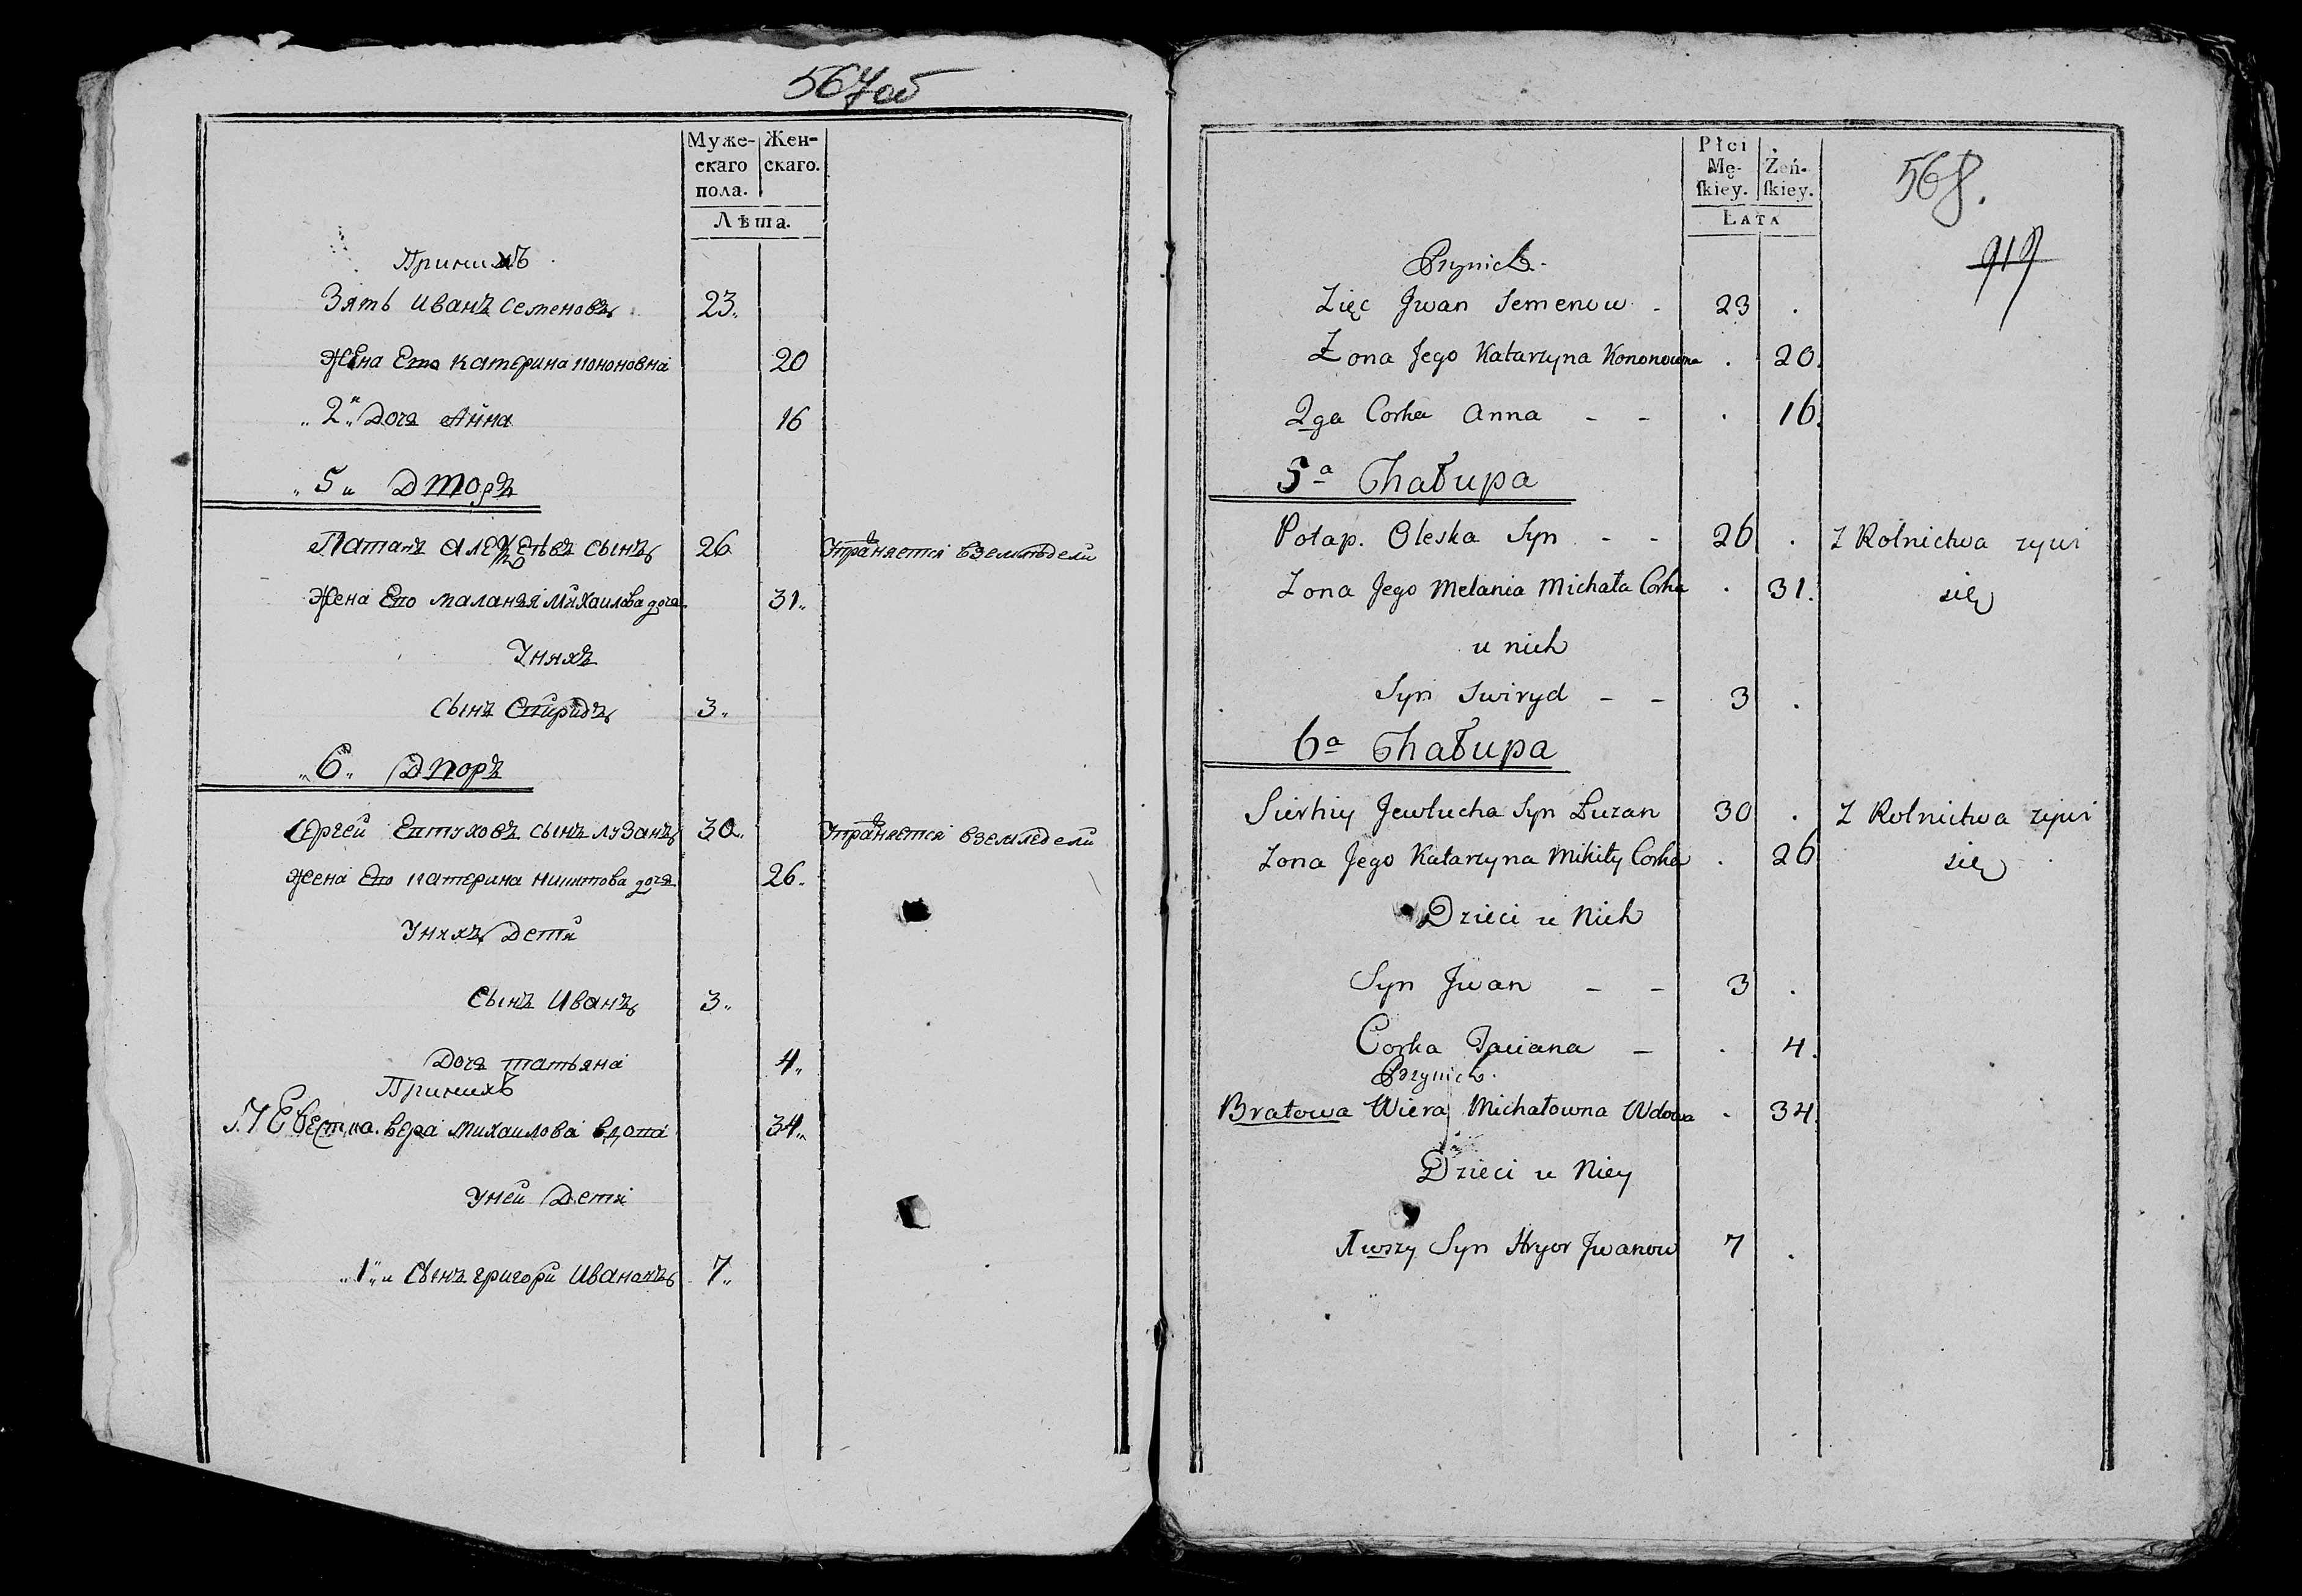 567об
Муже-
скаго
пола.
Жен-
скаго.
Лѣта.
Принихъ
Зять Иванъ Семеновъ 23.
Жена Его Катерина Кононовна 20
2я Дочь Анна 16
5й Дворъ
Патапъ Алексѣевъ сынъ 26 Упраняется вземледели
Жена Его Маланья Михаилова дочь 31.
Унихъ
Сынъ Спиридъ 3.
6й Дворъ
Сергей Евтуховъ сынъ Лузанъ 30. Упраняется вземледели
Жена Его Катерина Никитова дочь 26.
Унихъ Дети
Сынъ Иванъ 3.
Дочь Татьяна 4.
Принихъ
Невестка Вера Михаилова вдова 34.
Уней Дети
1й Сынъ Григори Ивановъ 7.
Płci
Mę-
ſkiey.
Żeń-
ſkiey.
LATA
568.
919
Przynich
Zięc Jwan Semenow - 23 .
Zona Jego Katarzyna Kononowna . 20.
2ga Corka Anna - - . 16.
5a Chałupa
Potap. Oleska Syn - - 26 . Z Rolnictwa zywi
Zona Jego Melania Michała Corka . 31. się
u nich
Syn Swiryd - - 3 .
6a Chałupa
Sierhiy Jewtucha Syn Łuzan 30 . Z Rolnictwa zywi
Zona Jego Katarzyna Mikity Corka . 26 się
Dzieci u Nich
Syn Jwan - - 3 .
Corka Taciana - . 4.
Przynich.
Bratowa Wiera Michałowna Wdowa . 34.
Dzieci u Niey
1wszy Syn Hryor Jwanow 7 .